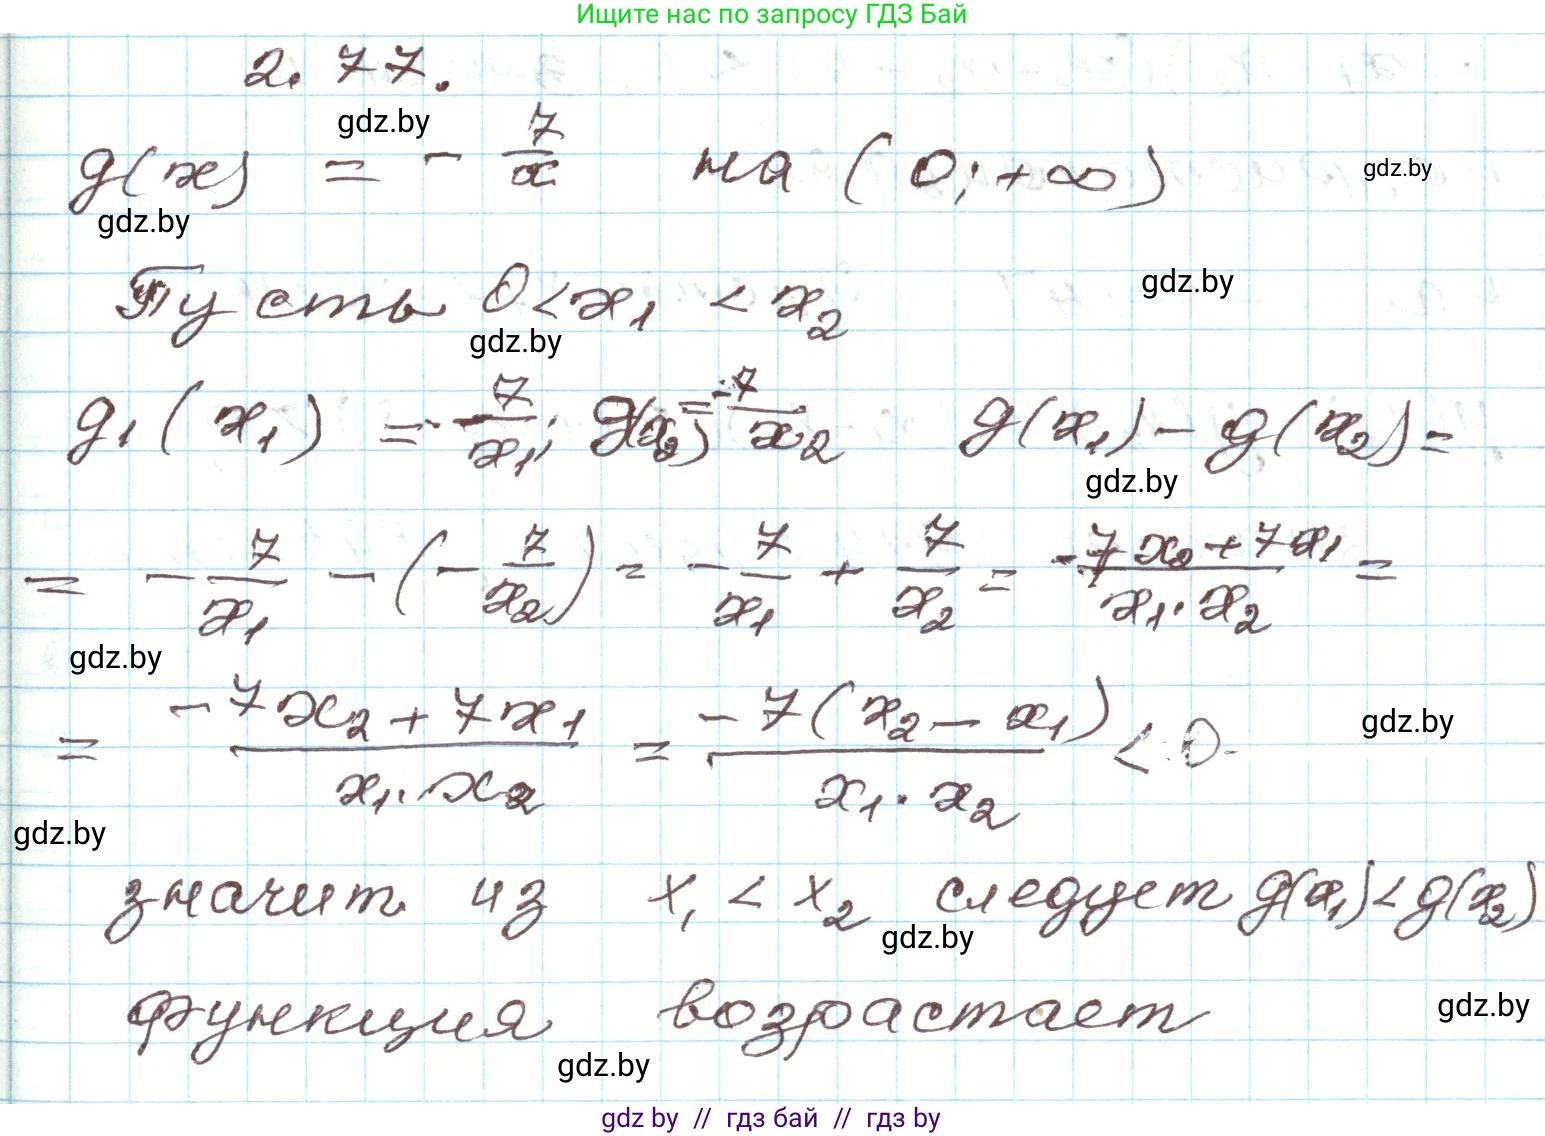 Ищите нас по запросу ГДЗ Бай
2.77.
gdz.by
g(x) = - 7/x на (0; +∞)
gdz.by
gdz.by
Пусть 0 < x₁ < x₂
gdz.by
gdz.by
g₁(x₁) = - 7/x₁; g(x₂) = -7/x₂ g(x₁) - g(x₂) =
gdz.by
= - 7/x₁ - (- 7/x₂) = - 7/x₁ + 7/x₂ = (-7x₂ + 7x₁)/(x₁ · x₂) =
gdz.by
= (-7x₂ + 7x₁)/(x₁ · x₂) = (-7(x₂ - x₁))/(x₁ · x₂) < 0
gdz.by
gdz.by
значит из x₁ < x₂ следует g(x₁) < g(x₂)
gdz.by
функция возрастает
gdz.by
gdz.by
gdz by // гдз бай // гдз by